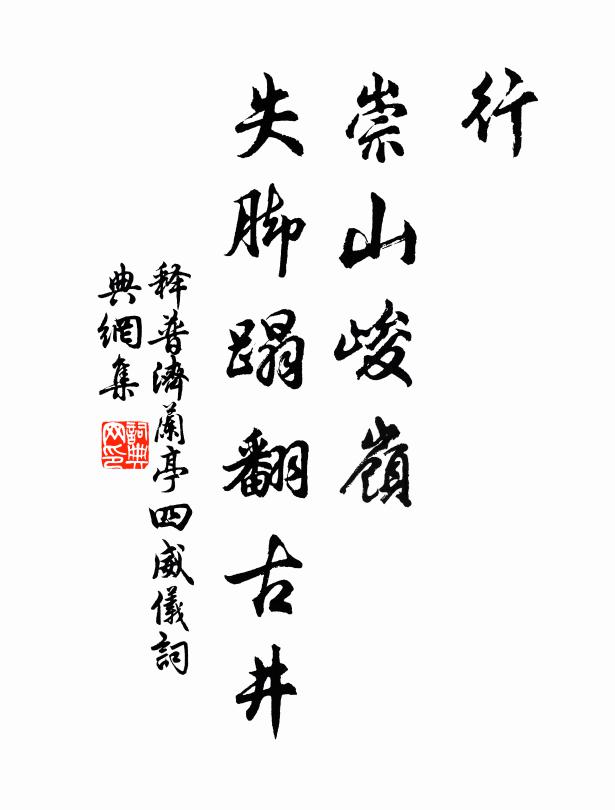 行
崇山峻嶺
失脚蹋翻古井
释普濟蘭亭四威儀詞
典網集
詞典
网印